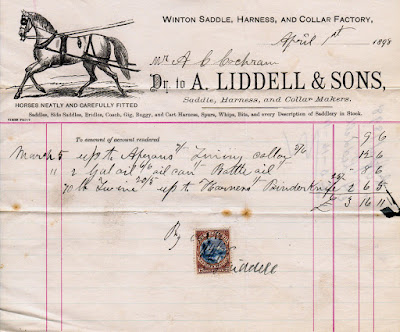 WINTON SADDLE, HARNESS, AND COLLAR FACTORY,
April 1st 1898
Mr A C Cochran
Dr. to A. LIDDELL & SONS,
Saddle, Harness, and Collar Makers.
HORSES NEATLY AND CAREFULLY FITTED
Saddles, Side Saddles, Bridles, Coach, Gig, Buggy, and Cart Harness, Spurs, Whips, Bits, and every Description of Saddlery in Stock.
To amount of account rendered - 9 6
March 5 up to Aperans Lining collar 2/6
11 2 Gal oil oil can Bottle oil - 8 6
20/5 up to Harness Binder 2 6 5
£ 3 16 11
By
Liddell